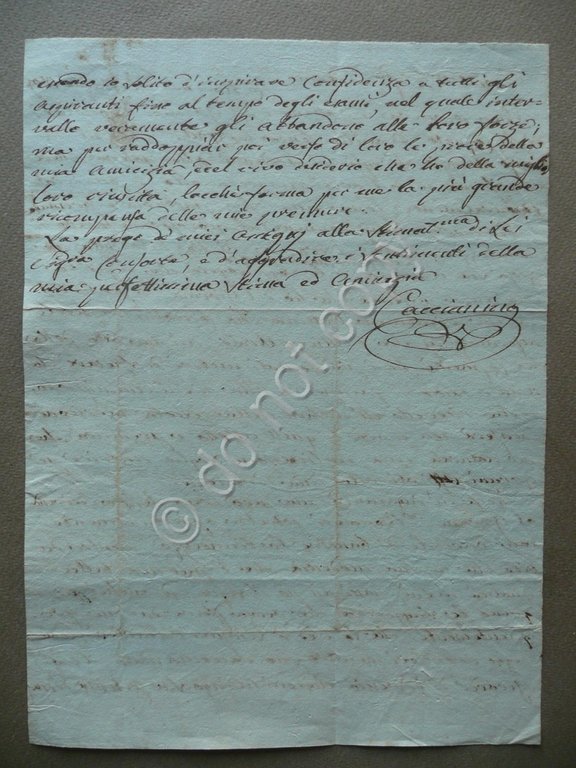 essendo io solito d'inspirare confidenza a tutti gli
aspiranti fino al tempo degli esami, nel quale inter-
vallo veramente gli abbandono alle loro forze,
ma per raddoppiar poi verso di loro le prove della
mia amicizia, del vivo desiderio che ho della miglior
loro riuscita, locchè forma per me la più grande
ricompensa delle mie premure.
La prego de' miei ossequj alla Stimatma di Lei
Consorte, e d'aggradire i sentimenti della
mia perfettissima stima ed amicizia
Caccianino
© do not copy